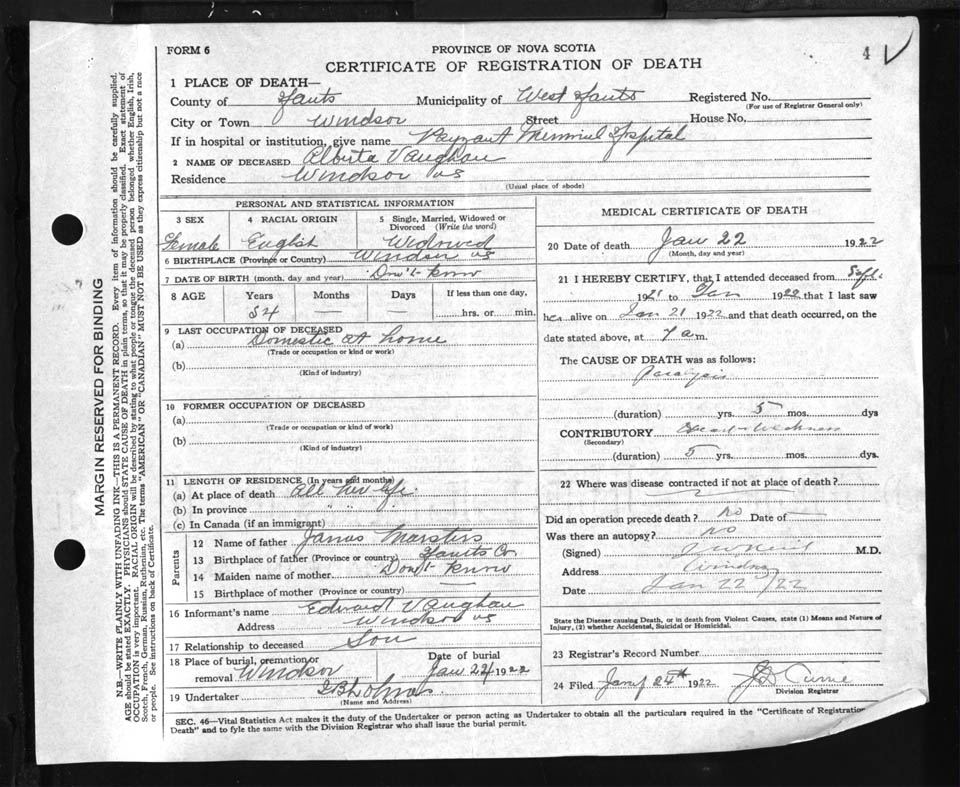 FORM 6
PROVINCE OF NOVA SCOTIA
4
CERTIFICATE OF REGISTRATION OF DEATH
1 PLACE OF DEATH—
County of Hants Municipality of West Hants Registered No.
(For use of Registrar General only)
City or Town Windsor Street House No.
If in hospital or institution, give name Payzant Memorial Hospital
2 NAME OF DECEASED Alberta Vaughan
Residence Windsor NS
(Usual place of abode)
PERSONAL AND STATISTICAL INFORMATION
3 SEX 4 RACIAL ORIGIN 5 Single, Married, Widowed or
Divorced (Write the word)
Female English Widowed
6 BIRTHPLACE (Province or Country) Windsor NS
7 DATE OF BIRTH (month, day and year) Don't know
8 AGE Years Months Days If less than one day,
84 — — hrs. or min.
9 LAST OCCUPATION OF DECEASED
(a) Domestic at home
(Trade or occupation or kind or work)
(b)
(Kind of industry)
10 FORMER OCCUPATION OF DECEASED
(a)
(Trade or occupation or kind of work)
(b)
(Kind of industry)
11 LENGTH OF RESIDENCE (In years and months)
(a) At place of death All her life
(b) In province " " "
(c) In Canada (if an immigrant)
Parents
12 Name of father James Marsters
13 Birthplace of father (Province or country) Hants Co
14 Maiden name of mother Don't know
15 Birthplace of mother (Province or country) —
16 Informant's name Edward Vaughan
Address Windsor NS
17 Relationship to deceased Son
18 Place of burial, cremation or Date of burial
removal Windsor Jan 24 1922
19 Undertaker
(Name and Address)
MEDICAL CERTIFICATE OF DEATH
20 Date of death Jan 22 1922
(Month, day and year)
21 I HEREBY CERTIFY, that I attended deceased from Sept
1921 to Jan 1922 that I last saw
her alive on Jan 21 1922 and that death occurred, on
date stated above, at 7 a m.
The CAUSE OF DEATH was as follows:
Paralysis
(duration) yrs. 5 mos. dys
CONTRIBUTORY Heart Weakness
(Secondary)
(duration) 5 yrs. mos. dys.
22 Where was disease contracted if not at place of death?
Did an operation precede death? no Date of —
Was there an autopsy? no
(Signed) M.D.
Address Windsor
Date Jan 22/22
State the Disease causing Death, or in death from Violent Causes, state (1) Means and Nature of
Injury, (2) whether Accidental, Suicidal or Homicidal.
23 Registrar's Record Number
24 Filed Jany 24th 1922
Division Registrar
SEC. 46—Vital Statistics Act makes it the duty of the Undertaker or person acting as Undertaker to obtain all the particulars required in the "Certificate of Registration
Death" and to fyle the same with the Division Registrar who shall issue the burial permit.
MARGIN RESERVED FOR BINDING
N.B.—WRITE PLAINLY WITH UNFADING INK—THIS IS A PERMANENT RECORD. Every item of information should be carefully supplied.
AGE should be stated EXACTLY. PHYSICIANS should STATE CAUSE OF DEATH in plain terms, so that it may be properly classified. Exact statement of
OCCUPATION is very important. RACIAL ORIGIN will be described by stating to what people or tongue the deceased person belonged whether English, Irish,
Scotch, French, German, Russian, Ruthenian, etc. The terms "AMERICAN" OR "CANADIAN" MUST NOT BE USED as they express citizenship but not a race
or people. See instructions on back of Certificate.